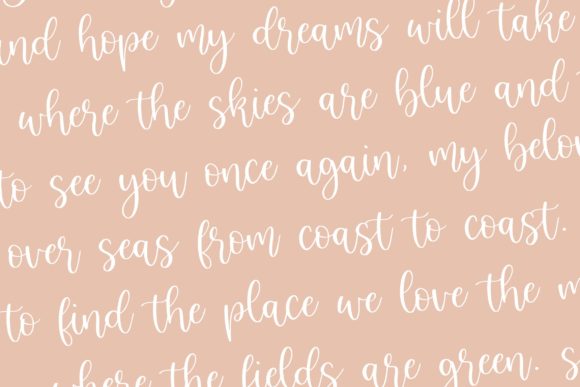 and hope my dreams will take
where the skies are blue and
to see you once again, my belov
over seas from coast to coast.
to find the place we love the m
where the fields are green. s